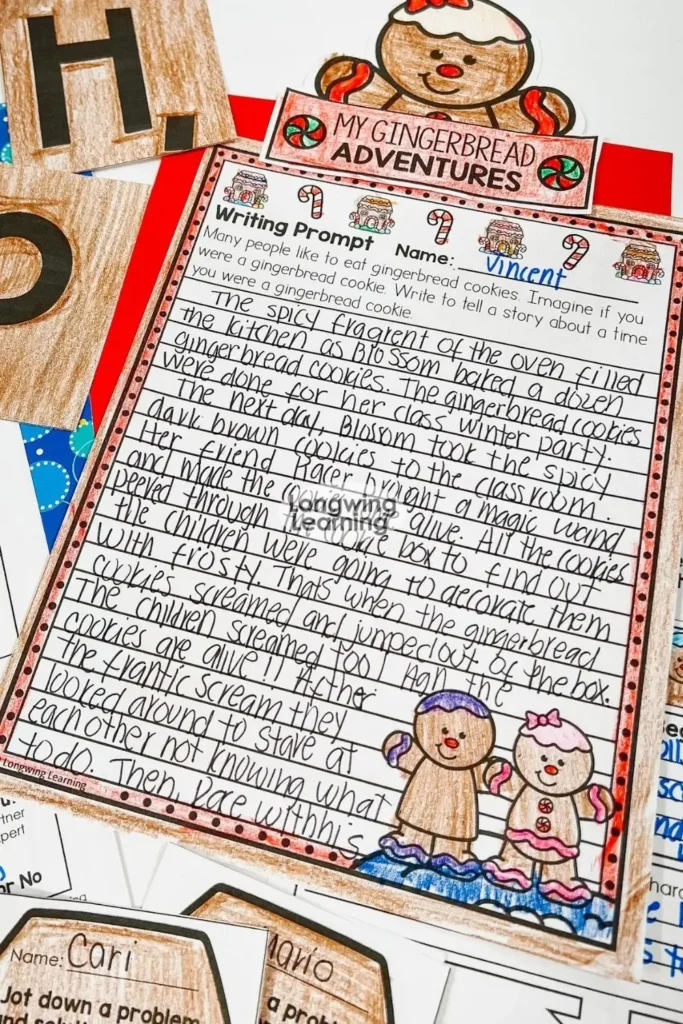 H,
MY GINGERBREAD
ADVENTURES
Writing Prompt Name: Vincent
Many people like to eat gingerbread cookies. Imagine if you
were a gingerbread cookie. Write to tell a story about a time
you were a gingerbread cookie.
The spicy fragrent of the oven filled
the kitchen as Blossom baked a dozen
gingerbread cookies. The gingerbread cookies
were done for her class winter party.
The next day, Blossom took the spicy
dark brown cookies to the classroom.
Her friend Racer brought a magic wand
and made the alive. All the cookies
peeked through box to find out
the children were going to decorate them
with frosty. Thats when the gingerbread
cookies screamed and jumped out of the box.
The children screamed too! the
cookies are alive!! After
the frantic scream they
looked around to stare at
each other not knowing what
to do. Then, withhis
Longwing
Learning
Longwing Learning
or No
Name: Cari
Jot down a problem
Mario